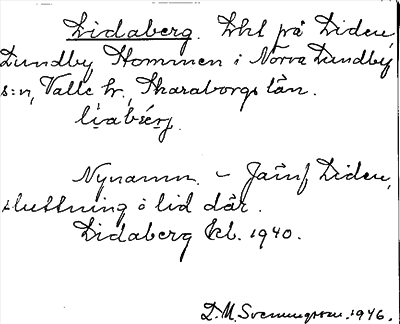 Lidaberg. Lht på Liden,
Lundby Stommen i Norra Lundby
s:n, Valle hr, Skaraborgs län.
liabærj.
Nynamn. – Jämf Liden,
sluttning o lid där.
Lidaberg kl. 1940.
D. M. Svenungsson. 1946.